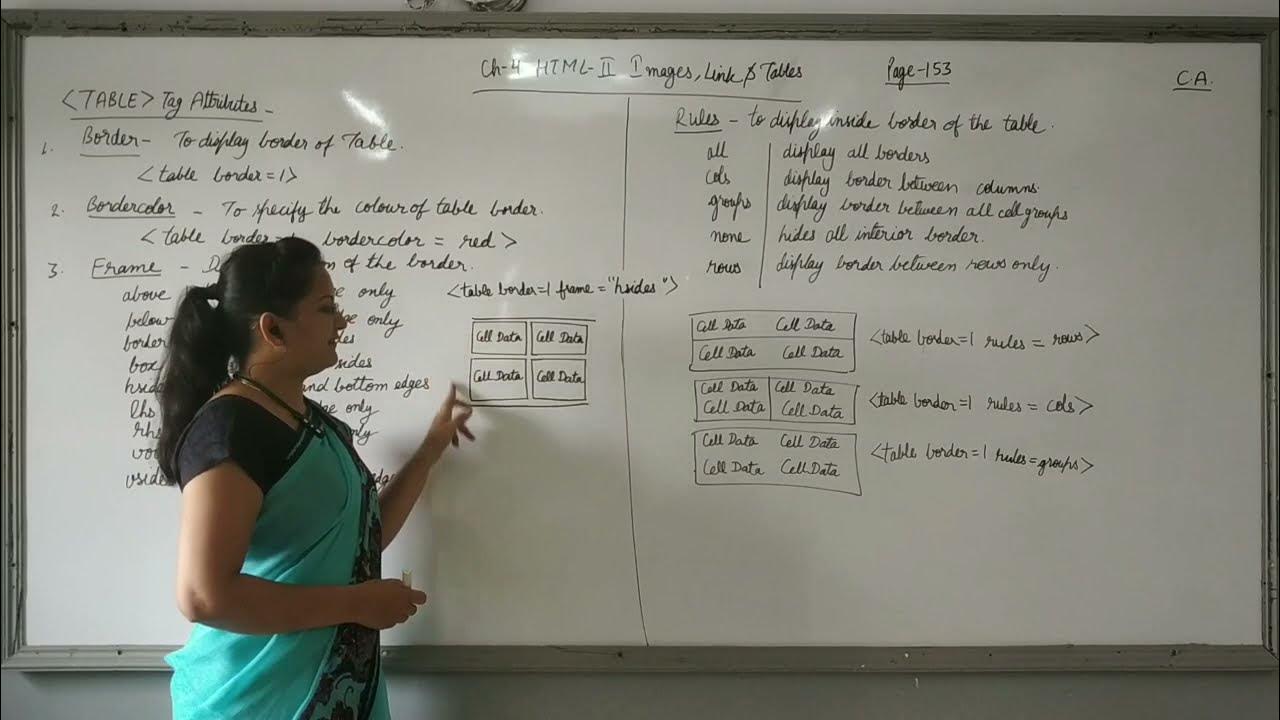 Ch-4 HTML-II Images, Link & Tables
Page-153
C.A.
<TABLE> Tag Attributes -
1. Border - To display border of Table.
<table border=1>
2. Bordercolor - To specify the colour of table border.
<table border bordercolor = red>
3. Frame - of the border.
above only
below only
border
box sides
hsides and bottom edges
lhs only
rhs only
vsides
<table border=1 frame = "hsides">
Cell Data Cell Data
Cell Data Cell Data
Rules - to display inside border of the table.
all display all borders
cols display border between columns.
groups display border between all cell groups
none hides all interior border.
rows display border between rows only.
Cell Data Cell Data
Cell Data Cell Data
<table border=1 rules = rows>
Cell Data Cell Data
Cell Data Cell Data
<table border=1 rules = cols>
Cell Data Cell Data
Cell Data Cell Data
<table border=1 rules=groups>